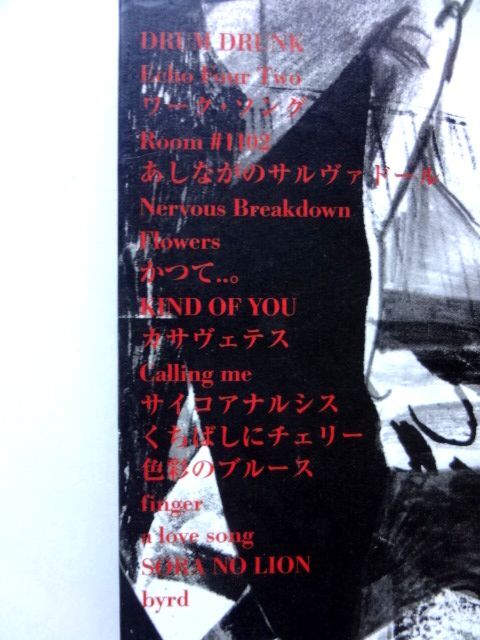 DRUM DRUNK
Echo Four Two
ワーク・ソング
Room #1102
あしながのサルヴァドール
Nervous Breakdown
Flowers
かつて..。
KIND OF YOU
カサヴェテス
Calling me
サイコアナルシス
くちばしにチェリー
色彩のブルース
finger
a love song
SORA NO LION
byrd